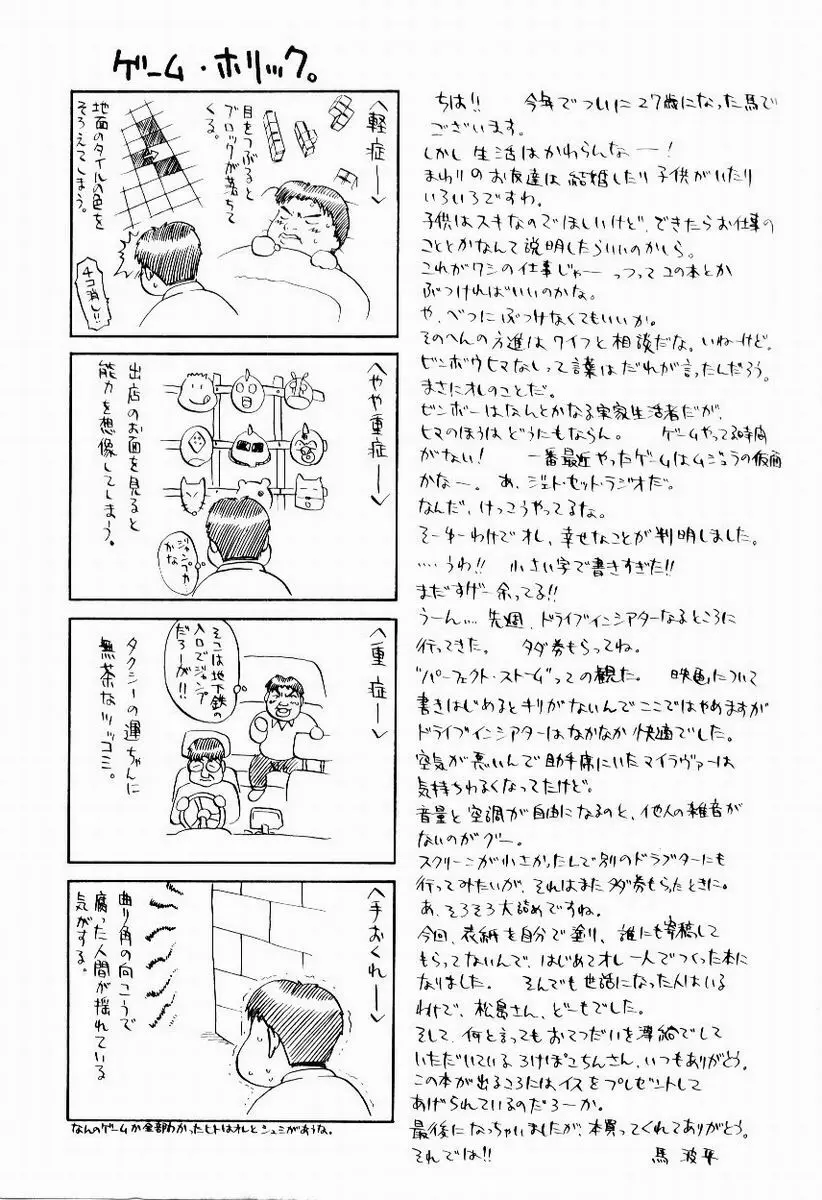 ゲーム・ホリック。
〈軽症〉
目をつぶると
ブロックが落ちて
くる。
地面のタイルの色を
そろえてしまう。
4コ消し!!
〈やや重症〉
出店のお面を見ると
能力を想像してしまう。
ジャンプカ
かな
〈重症〉
そこは地下鉄の
入口でジャンプ
だろーが!!
タクシーの運ちゃんに
無茶なツッコミ。
〈手おくれ〉
曲り角の向こうで
腐った人間が揺れている
気がする。
なんのゲームか全部わかったヒトはオレとシュミがあうな。
ちは!! 今年でついに27歳になった馬で
ございます。
しかし生活はかわらんなー!
まわりのお友達は結婚したり子供がいたり
いろいろですわ。
子供はスキなのでほしいけど、できたらお仕事の
こととかなんて説明したらいいのかしら。
これがワシの仕事じゃーっつってコの本とか
ぶつければいいのかな。
や、べつにぶつけなくてもいいか。
そのへんの方進はワイフと相談だな。いねーけど。
ビンボウヒマなしって言葉はだれが言ったんだろう。
まさにオレのことだ。
ビンボーはなんとかなる実家生活者だが、
ヒマのほうはどうにもならん。 ゲームやってる時間
がない! 一番最近やったゲームはムジュラの仮面
かなー。 あ、ジェト・セット・ラジオだ。
なんだ、けっこうやってるな。
そーゆーわけでオレ、幸せなことが判明しました。
…うわ!! 小さい字で書きすぎた!!
まだすげー余ってる!!
うーん…先週、ドライブインシアターなるところに
行ってきた。 タダ券もらってね。
“パーフェクト・ストーム”っての観た。 映画について
書きはじめるとキリがないんでここではやめますが
ドライブインシアターはなかなか快適でした。
空気が悪いんで助手席にいたマイラヴァーは
気持ちわるくなってたけど。
音量と空調が自由になるのと、他人の雑音が
ないのがグー。
スクリーンが小さかったしで別のドラブターにも
行ってみたいが、それはまたタダ券もらたときに。
あ、そろそろ大詰めですね。
今回、表紙を自分で塗り、誰にも寄稿して
もらってないんで、はじめてオレ一人でつくった本に
なりました。 そんでも世話になった人はいる
わけで、松島さん、どーもでした。
そして、何と言ってもおてつだいを薄給でして
いただいている ろけぽこちんさん、いつもありがとう。
この本が出るころにはイスをプレゼントして
あげられているのだろーか。
最後になっちゃいましたが、本買ってくれてありがとう。
それでは!! 馬 波平